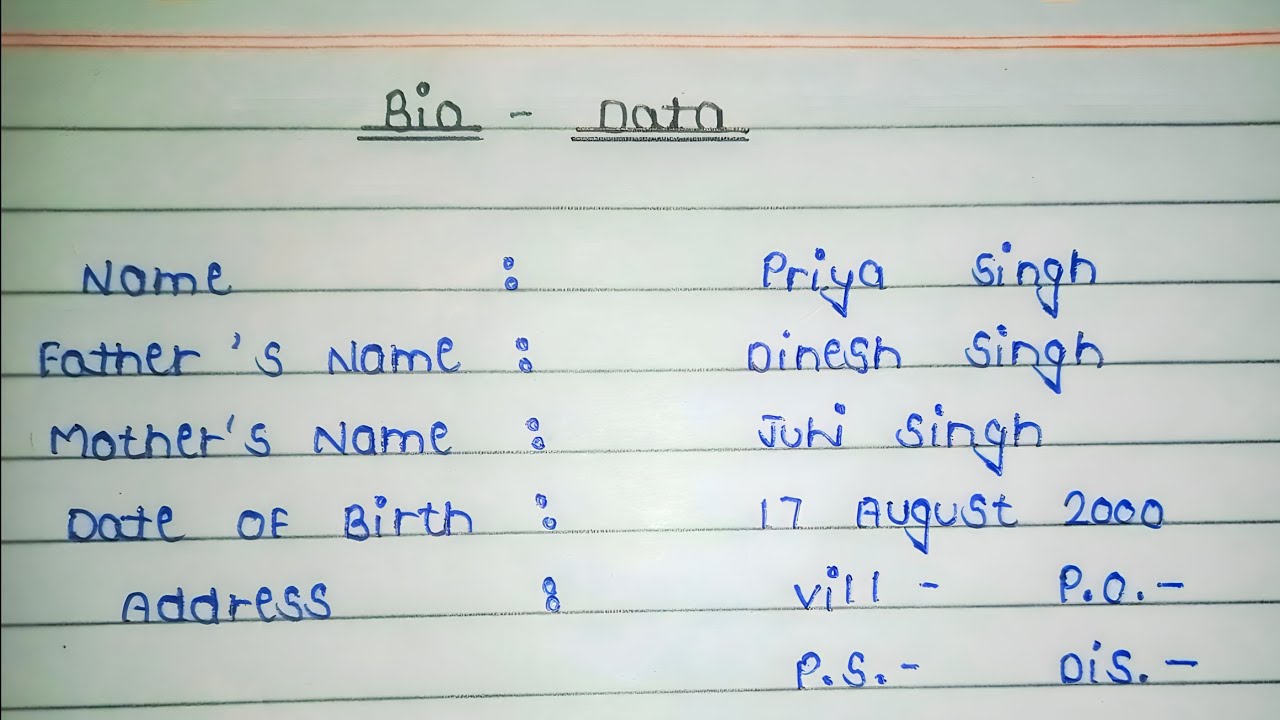 Bio - Data
Name : Priya Singh
Father's Name : Dinesh Singh
Mother's Name : Juhi Singh
Date OF Birth : 17 August 2000
Address : Vill - P.O.-
P.S.- Dis.-